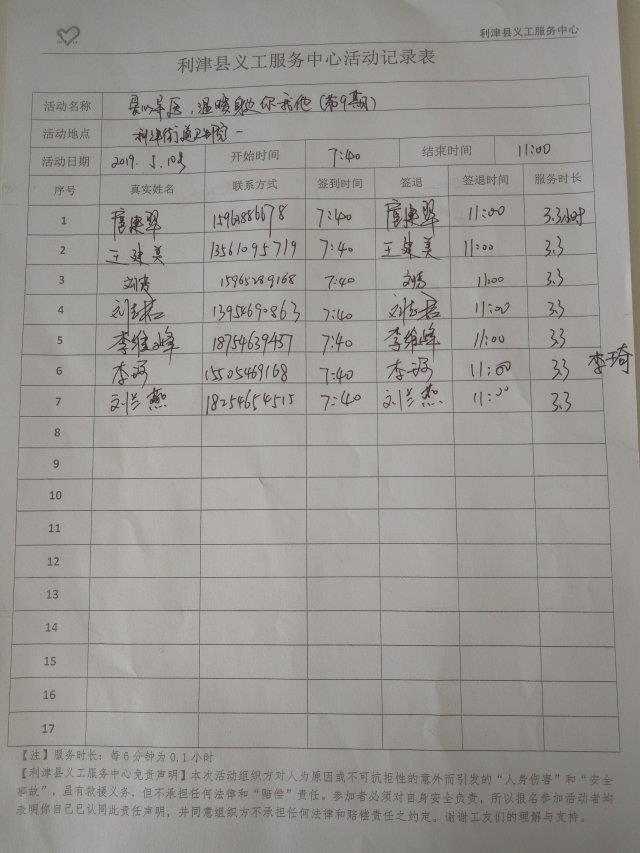 利津县义工服务中心
利津县义工服务中心活动记录表
活动名称 爱心早医，温暖你我他（第9期）
活动地点 利津街道
活动日期 2019.5.10号 开始时间 7:40 结束时间 11:00
序号 真实姓名 联系方式 签到时间 签退 签退时间 服务时长
1 7:40 11:00 3.3小时
2 王建美 13561095719 7:40 王建美 11:00 3.3
3 15965289168 7:40 11:00 3.3
4 13954690863 7:40 11:00 3.3
5 李维峰 18754639457 7:40 李维峰 11:00 3.3
6 15505469168 7:40 11:00 3.3 李琦
7 刘兰燕 18254654515 7:40 刘兰燕 11:00 3.3
8
9
10
11
12
13
14
15
16
17
【注】服务时长：每6分钟为0.1小时
【利津县义工服务中心免责声明】本次活动组织方对人为原因或不可抗拒性的意外而引发的“人身伤害”和“安全
事故”，虽有救援义务，但不承担任何法律和“赔偿”责任。参加者必须对自身安全负责，所以报名参加活动者均
表明你自己已认同此责任声明，并同意组织方不承担任何法律和赔偿责任之约定。谢谢工友们的理解与支持。